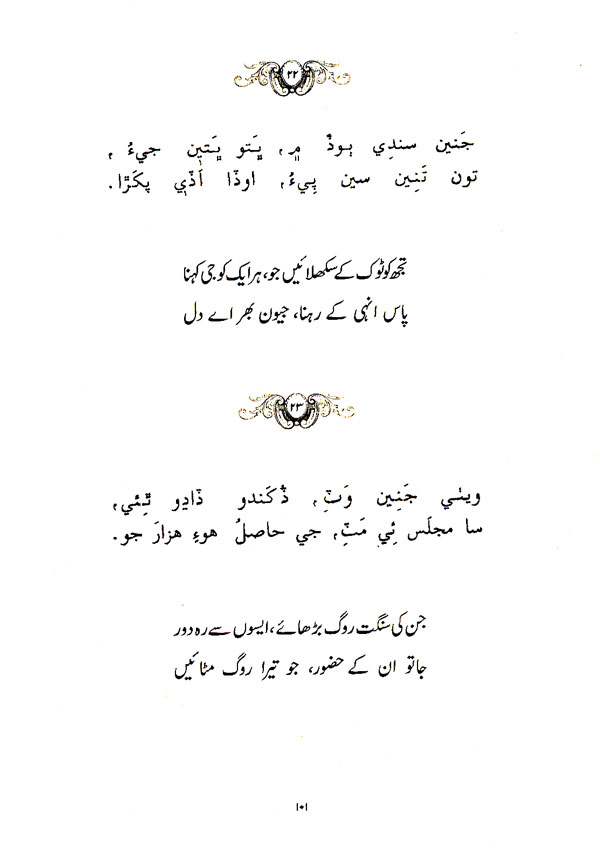 ۲۲
جَنين سندِي ٻوڌَ ۾، پَتو پَتين جيءُ،
تون تَنِين سين پِيءُ، اوڏا اَڏي پکَڙا.
تجھ کو ٹوک کے سکھلائیں جو، ہر ایک کو جی کہنا
پاس انہی کے رہنا، جیون بھر اے دل
۲۳
ويٺي جَنِين وَٽِ، ڏُکَندو ڏاڍو ٿِئي،
سا مجلَس ئِي مَٽِ، جي حاصلُ هوءِ هزارَ جو.
جن کی سنگت روگ بڑھائے، ایسوں سے رہ دور
جاتو ان کے حضور، جو تیرا روگ مٹائیں
۱۰۱